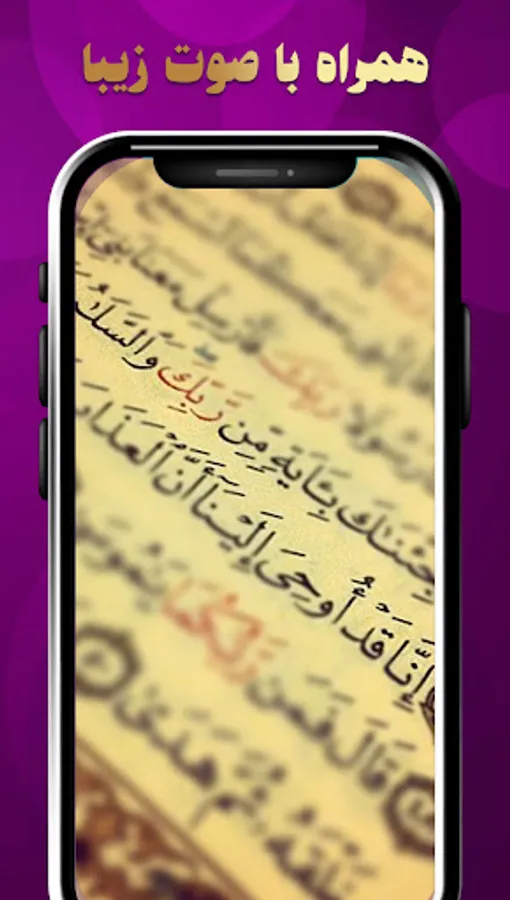 همراه با صوت زیبا
رَسُولَا رَبِّكَ فَأَرْسِلْ مَعَنَا بَنِىٓ
جِئْنَٰكَ بِـَٔايَةٍ مِّن رَّبِّكَ وَٱلسَّلَٰ
إِنَّا قَدْ أُوحِىَ إِلَيْنَآ أَنَّ ٱلْعَذَابَ
قَالَ فَمَن رَّبُّكُمَا يَٰمُوسَىٰ
خَلْقَهُۥ ثُمَّ هَدَىٰ